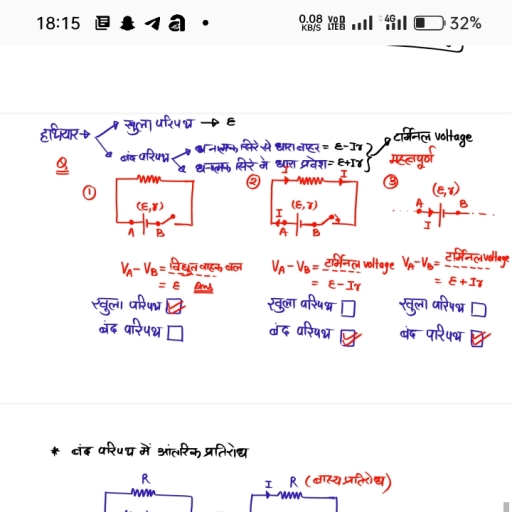 18:15 a • 0.08 KB/S VoD LTE 4G 32%
हथियार → खुला परिपथ → ε
बंद परिपथ
धनात्मक सिरे से धारा बाहर = ε-Ir
धनात्मक सिरे में धारा प्रवेश = ε+Ir
टर्मिनल voltage
महत्वपूर्ण
Q
① (ε,r) A B
② I I (ε,r) I A B
③ (ε,r) A B I
VA-VB = विद्युत वाहक बल
= ε Ans
खुला परिपथ ☑
बंद परिपथ ☐
VA-VB = टर्मिनल voltage
= ε-Ir
खुला परिपथ ☐
बंद परिपथ ☑
VA-VB = टर्मिनल voltage
= ε+Ir
खुला परिपथ ☐
बंद परिपथ ☑
* बंद परिपथ में आंतरिक प्रतिरोध
R
I R (बाह्य प्रतिरोध)